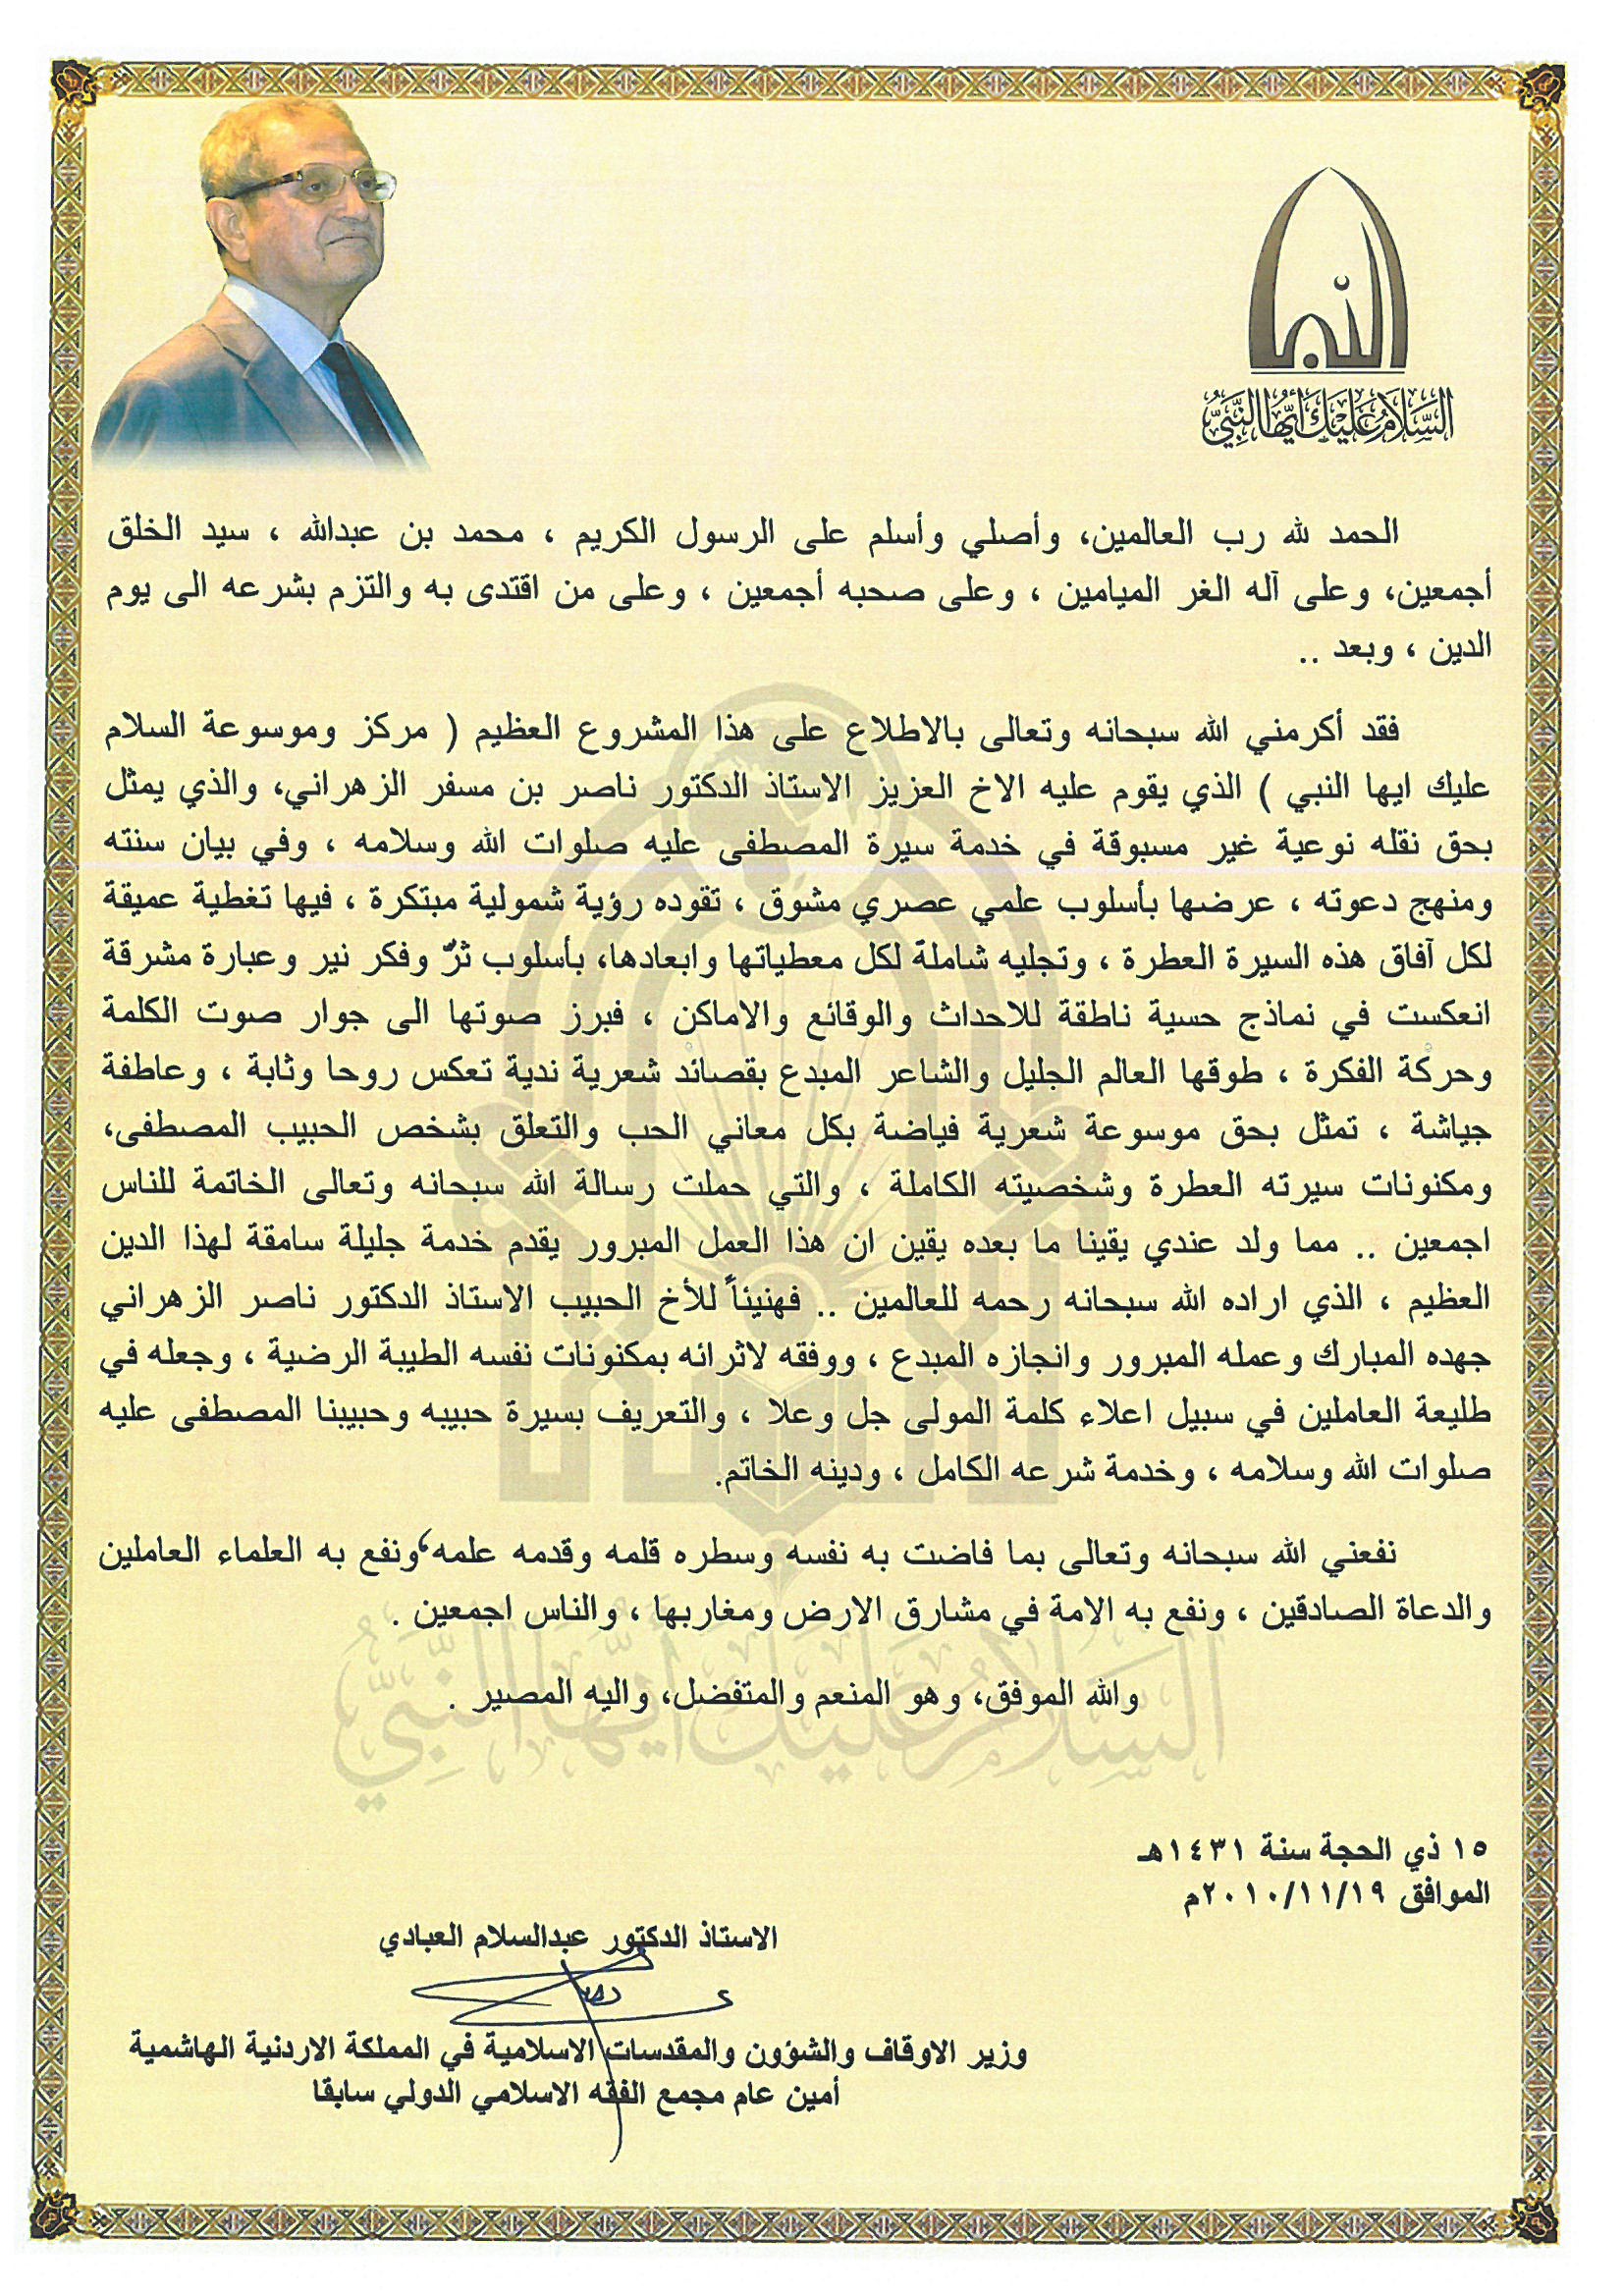 السَّلَامُ عَلَيْكَ أَيُّهَا النَّبِيُّ
الحمد لله رب العالمين، وأصلي وأسلم على الرسول الكريم ، محمد بن عبدالله ، سيد الخلق
أجمعين، وعلى آله الغر الميامين ، وعلى صحبه أجمعين ، وعلى من اقتدى به والتزم بشرعه الى يوم
الدين ، وبعد ..
فقد أكرمني الله سبحانه وتعالى بالاطلاع على هذا المشروع العظيم ( مركز وموسوعة السلام
عليك ايها النبي ) الذي يقوم عليه الاخ العزيز الاستاذ الدكتور ناصر بن مسفر الزهراني، والذي يمثل
بحق نقله نوعية غير مسبوقة في خدمة سيرة المصطفى عليه صلوات الله وسلامه ، وفي بيان سنته
ومنهج دعوته ، عرضها بأسلوب علمي عصري مشوق ، تقوده رؤية شمولية مبتكرة ، فيها تغطية عميقة
لكل آفاق هذه السيرة العطرة ، وتجليه شاملة لكل معطياتها وابعادها، بأسلوب ثرٌ وفكر نير وعبارة مشرقة
انعكست في نماذج حسية ناطقة للاحداث والوقائع والاماكن ، فبرز صوتها الى جوار صوت الكلمة
وحركة الفكرة ، طوقها العالم الجليل والشاعر المبدع بقصائد شعرية ندية تعكس روحا وثابة ، وعاطفة
جياشة ، تمثل بحق موسوعة شعرية فياضة بكل معاني الحب والتعلق بشخص الحبيب المصطفى،
ومكنونات سيرته العطرة وشخصيته الكاملة ، والتي حملت رسالة الله سبحانه وتعالى الخاتمة للناس
اجمعين .. مما ولد عندي يقينا ما بعده يقين ان هذا العمل المبرور يقدم خدمة جليلة سامقة لهذا الدين
العظيم ، الذي اراده الله سبحانه رحمه للعالمين .. فهنيئاً للأخ الحبيب الاستاذ الدكتور ناصر الزهراني
جهده المبارك وعمله المبرور وانجازه المبدع ، ووفقه لاثرائه بمكنونات نفسه الطيبة الرضية ، وجعله في
طليعة العاملين في سبيل اعلاء كلمة المولى جل وعلا ، والتعريف بسيرة حبيبه وحبيبنا المصطفى عليه
صلوات الله وسلامه ، وخدمة شرعه الكامل ، ودينه الخاتم.
نفعني الله سبحانه وتعالى بما فاضت به نفسه وسطره قلمه وقدمه علمه، ونفع به العلماء العاملين
والدعاة الصادقين ، ونفع به الامة في مشارق الارض ومغاربها ، والناس اجمعين .
والله الموفق، وهو المنعم والمتفضل، واليه المصير .
السَّلَامُ عَلَيْكَ أَيُّهَا النَّبِيُّ
١٥ ذي الحجة سنة ١٤٣١هـ
الموافق ٢٠١٠/١١/١٩م
الاستاذ الدكتور عبدالسلام العبادي
وزير الاوقاف والشؤون والمقدسات الاسلامية في المملكة الاردنية الهاشمية
أمين عام مجمع الفقه الاسلامي الدولي سابقا